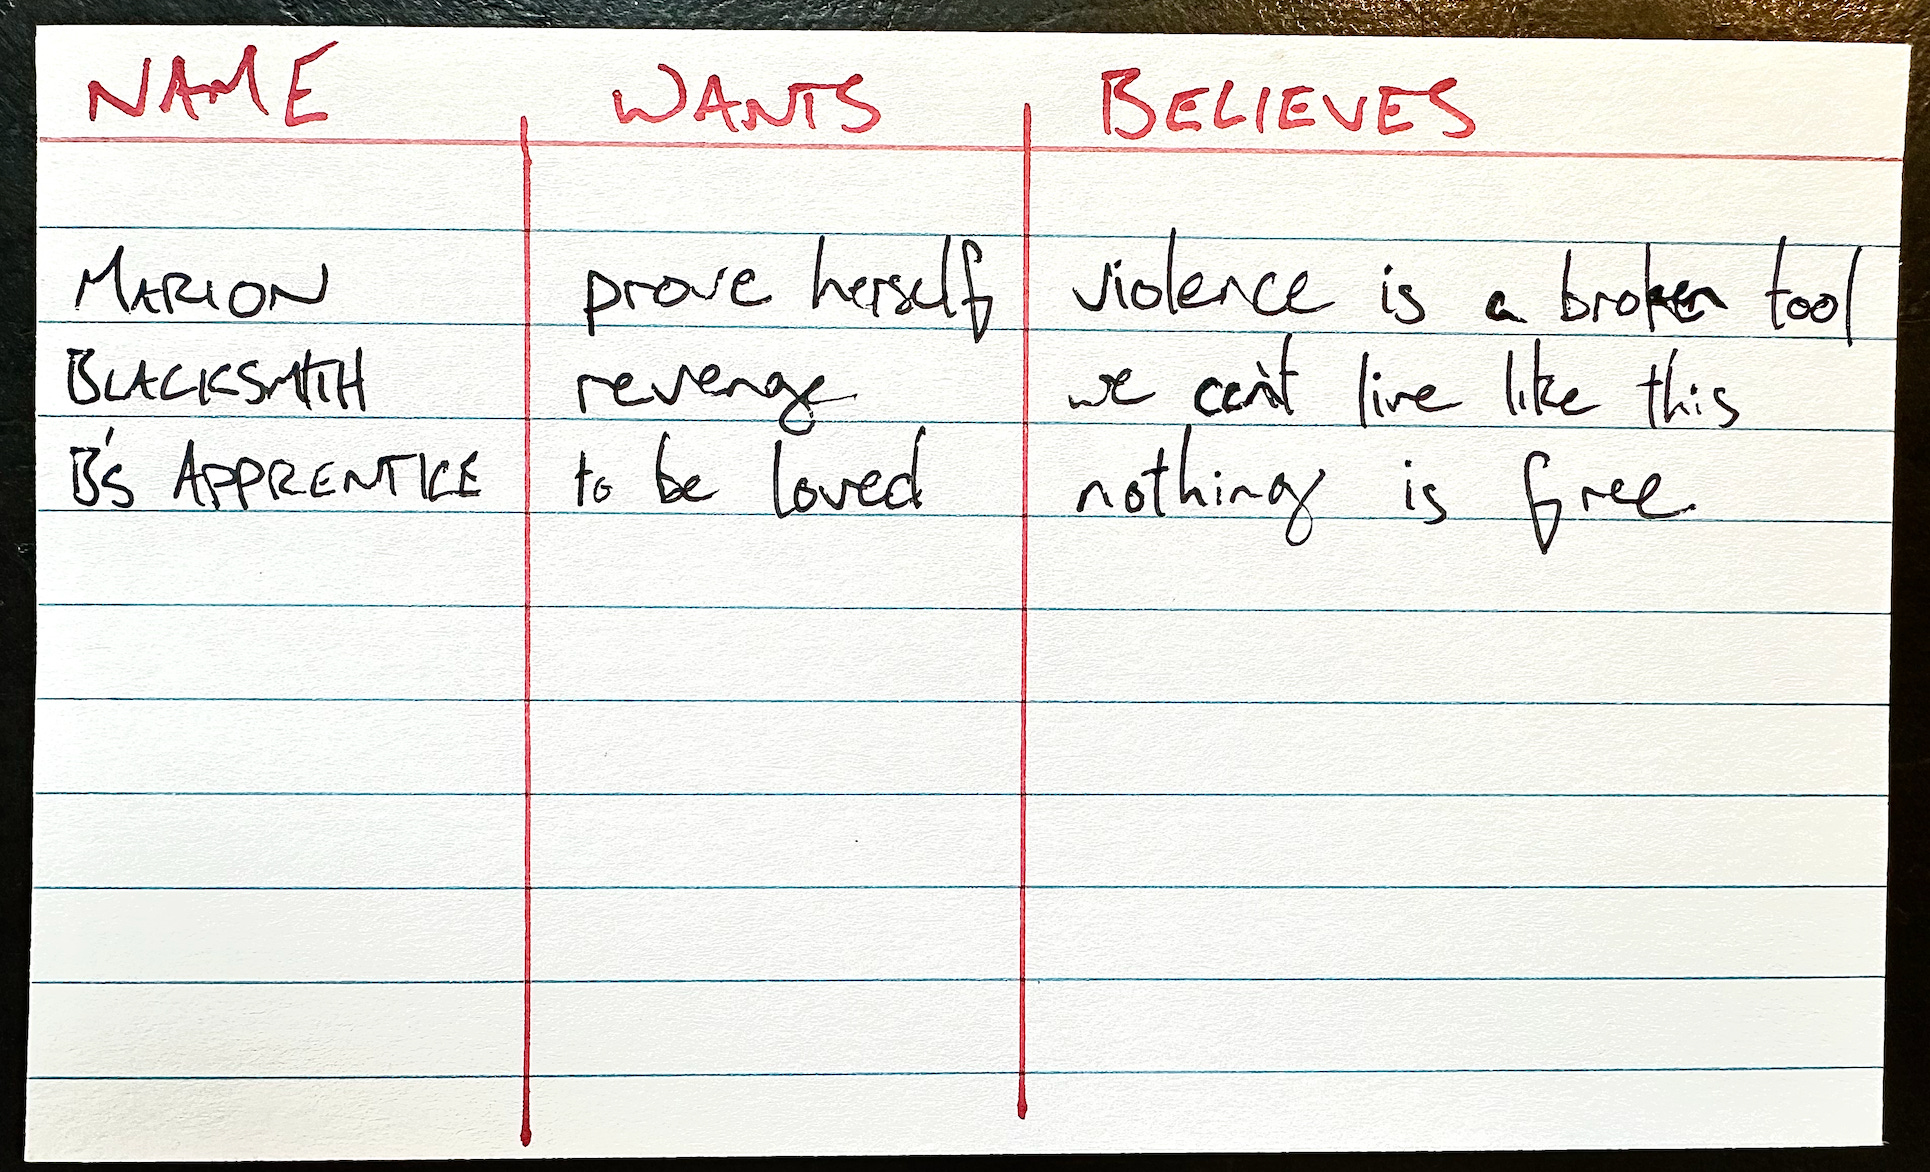 NAME WANTS BELIEVES
MARION prove herself violence is a broken tool
BLACKSMITH revenge we can't live like this
B's APPRENTICE to be loved nothing is free